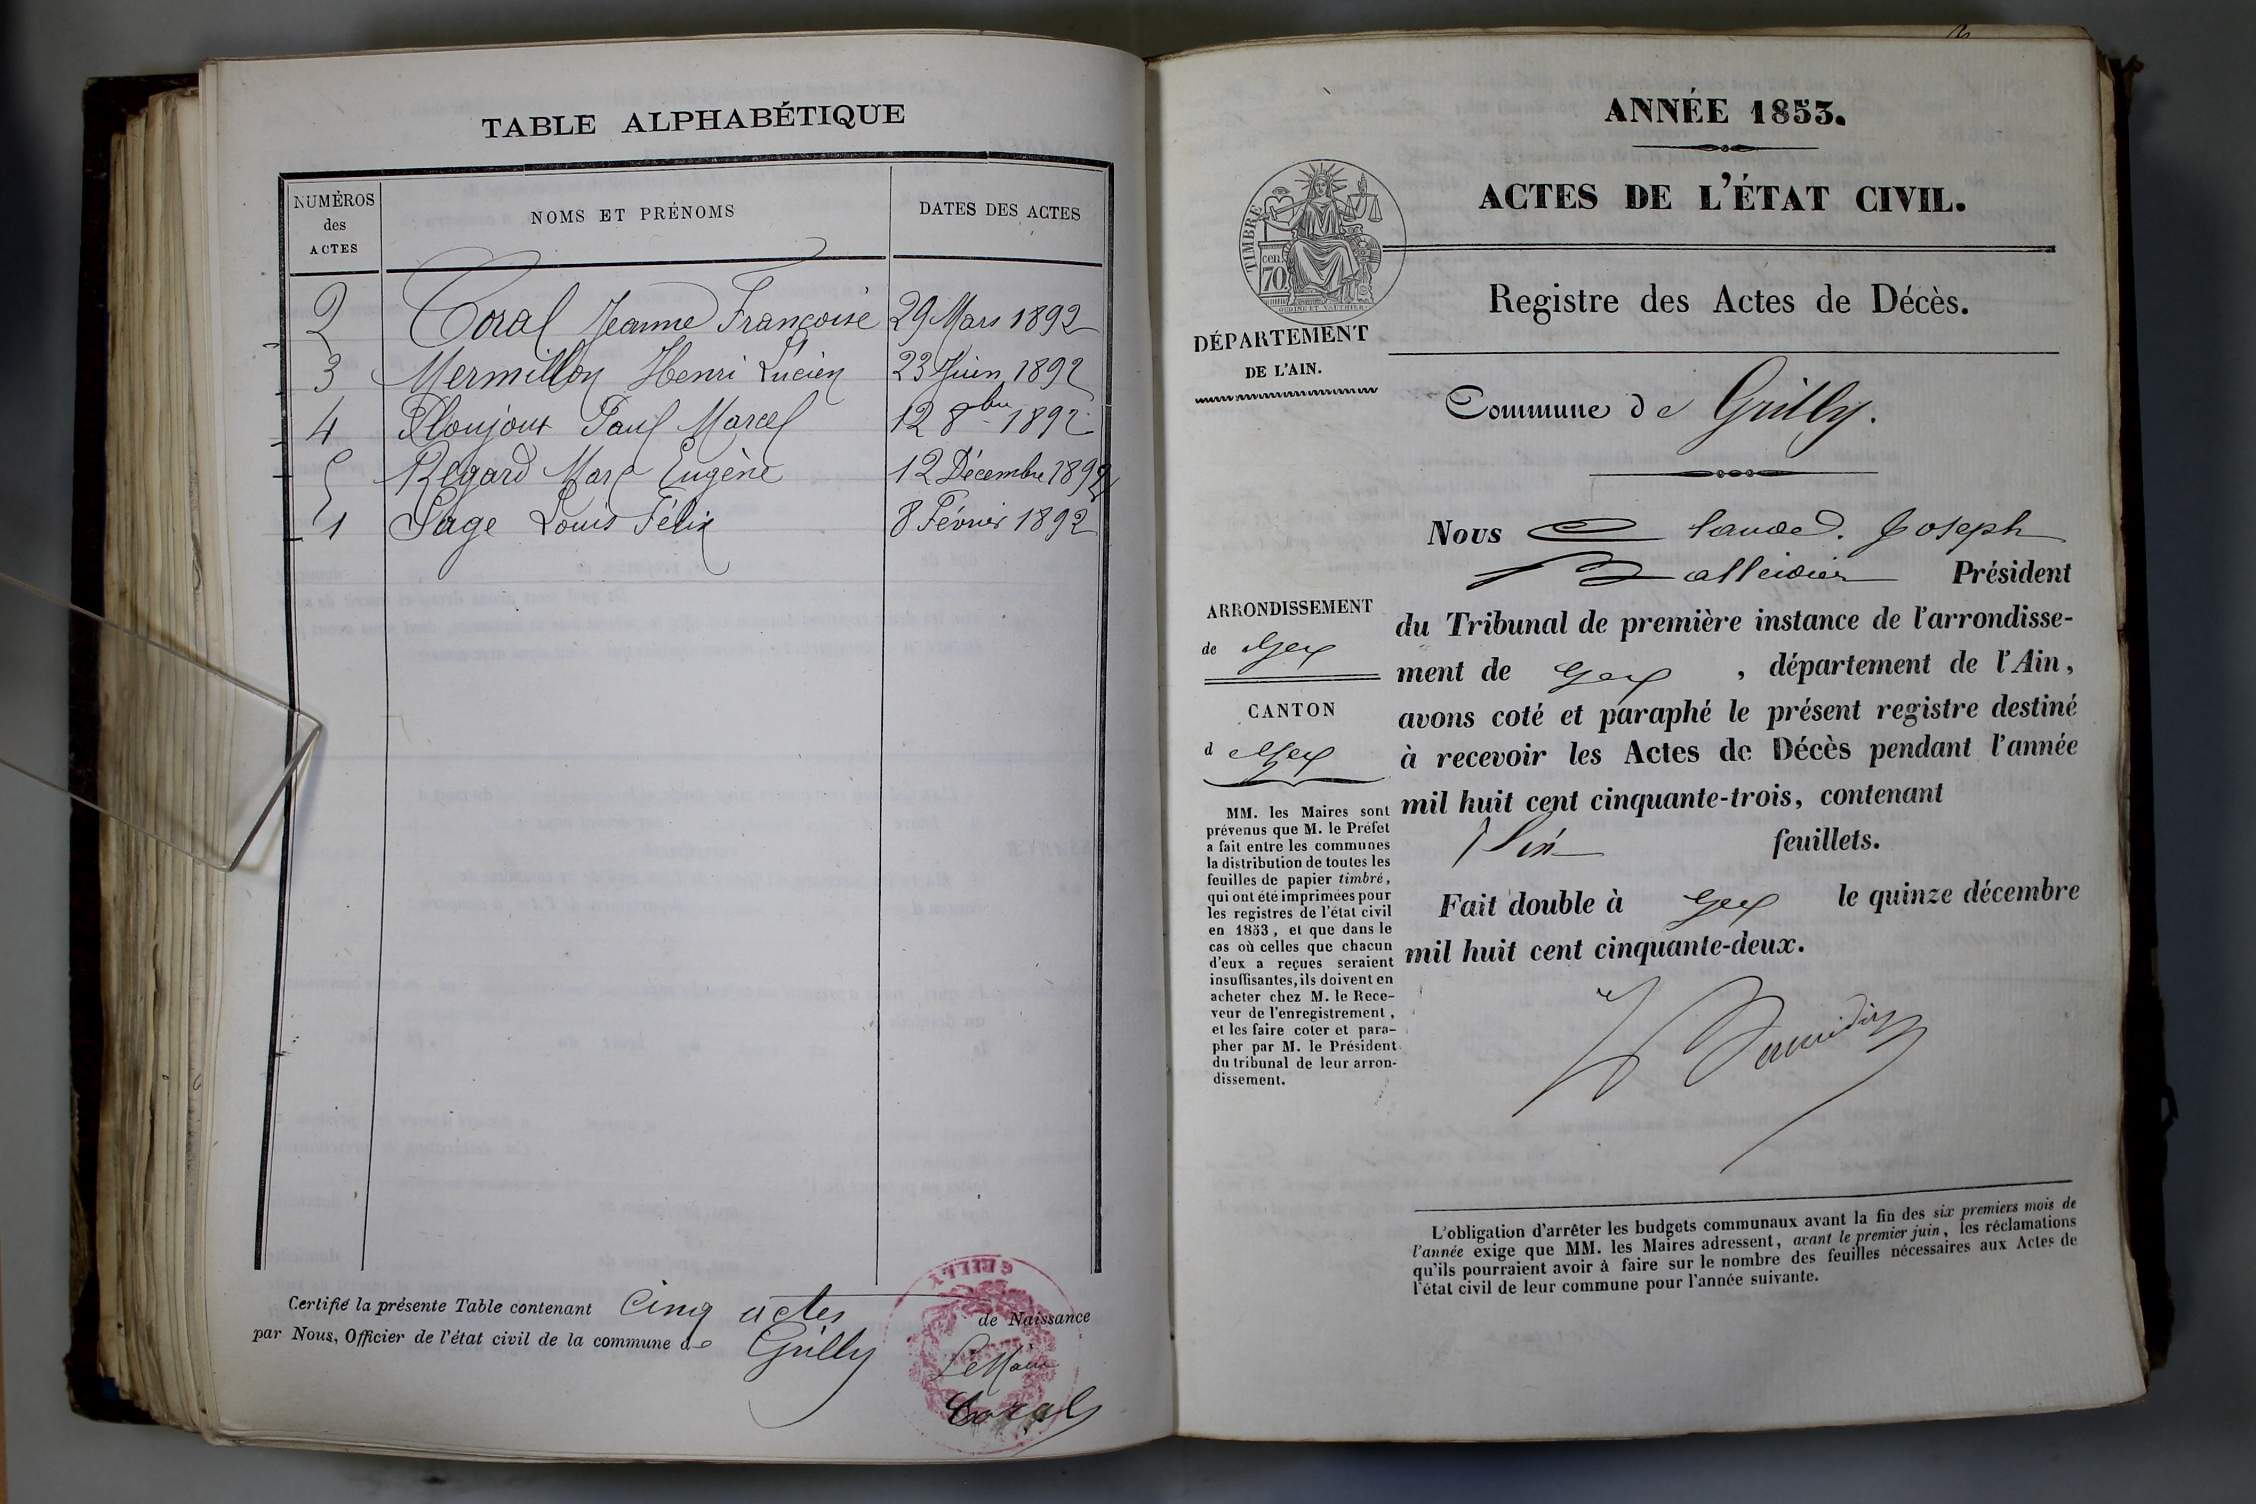 TABLE ALPHABÉTIQUE
NUMÉROS des ACTES
NOMS ET PRÉNOMS
DATES DES ACTES
2 Coral Jeanne Françoise 29 Mars 1892
3 Mermillon Henri Lucien 23 Juin 1892
4 Ploujoux Paul Marcel 12 8bre 1892
5 Regard Marc Eugène 12 Décembre 1892
1 Sage Louis Félix 8 Février 1892
Certifié la présente Table contenant Cinq actes de Naissance
par Nous, Officier de l'état civil de la commune de Grilly
Le Maire
Coral
GRILLY
ANNÉE 1853.
ACTES DE L'ÉTAT CIVIL.
TIMBRE
70 cen.
Registre des Actes de Décès.
DÉPARTEMENT
DE L'AIN.
Commune de Grilly.
Nous Claude Joseph
Balleidier Président
du Tribunal de première instance de l'arrondisse-
ment de Gex, département de l'Ain,
avons coté et paraphé le présent registre destiné
à recevoir les Actes de Décès pendant l'année
mil huit cent cinquante-trois, contenant
Six feuillets.
Fait double à Gex le quinze décembre
mil huit cent cinquante-deux.
ARRONDISSEMENT
de Gex
CANTON
d Gex
MM. les Maires sont
prévenus que M. le Préfet
a fait entre les communes
la distribution de toutes les
feuilles de papier timbré,
qui ont été imprimées pour
les registres de l'état civil
en 1853, et que dans le
cas où celles que chacun
d'eux a reçues seraient
insuffisantes, ils doivent en
acheter chez M. le Rece-
veur de l'enregistrement,
et les faire coter et para-
pher par M. le Président
du tribunal de leur arron-
dissement.
L'obligation d'arrêter les budgets communaux avant la fin des six premiers mois de
l'année exige que MM. les Maires adressent, avant le premier juin, les réclamations
qu'ils pourraient avoir à faire sur le nombre des feuilles nécessaires aux Actes de
l'état civil de leur commune pour l'année suivante.